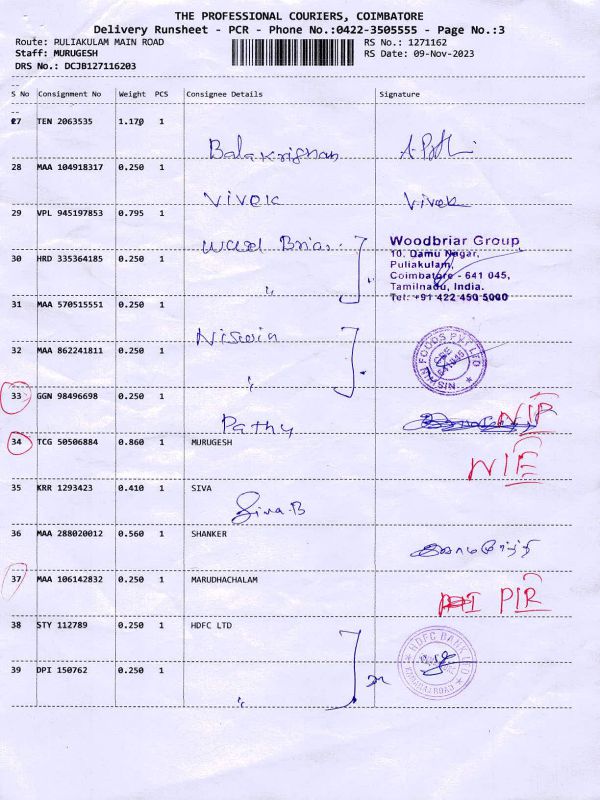 THE PROFESSIONAL COURIERS, COIMBATORE
Delivery Runsheet - PCR - Phone No.:0422-3505555 - Page No.:3
Route: PULIAKULAM MAIN ROAD RS No.: 1271162
Staff: MURUGESH RS Date: 09-Nov-2023
DRS No.: DCJB127116203
S No Consignment No Weight PCS Consignee Details Signature
27 TEN 2063535 1.170 1
Balakrishnan
28 MAA 104918317 0.250 1
Vivek Vivek
29 VPL 945197853 0.795 1
Wood Briar
Woodbriar Group
30 HRD 335364185 0.250 1 10. Damu Nagar,
Puliakulam,
Coimbatore - 641 045,
Tamilnadu, India.
Tel: +91 422 450 5000
31 MAA 570515551 0.250 1
Niswin
32 MAA 862241811 0.250 1
NISWIN FOODS PVT LTD
33 GGN 98496698 0.250 1
Pathy NIR
34 TCG 50506884 0.860 1 MURUGESH
NIE
35 KRR 1293423 0.410 1 SIVA
Siva.B
36 MAA 288020012 0.560 1 SHANKER
37 MAA 106142832 0.250 1 MARUDHACHALAM
PIR
38 STY 112789 0.250 1 HDFC LTD
HDFC BANK LTD
39 DPI 150762 0.250 1